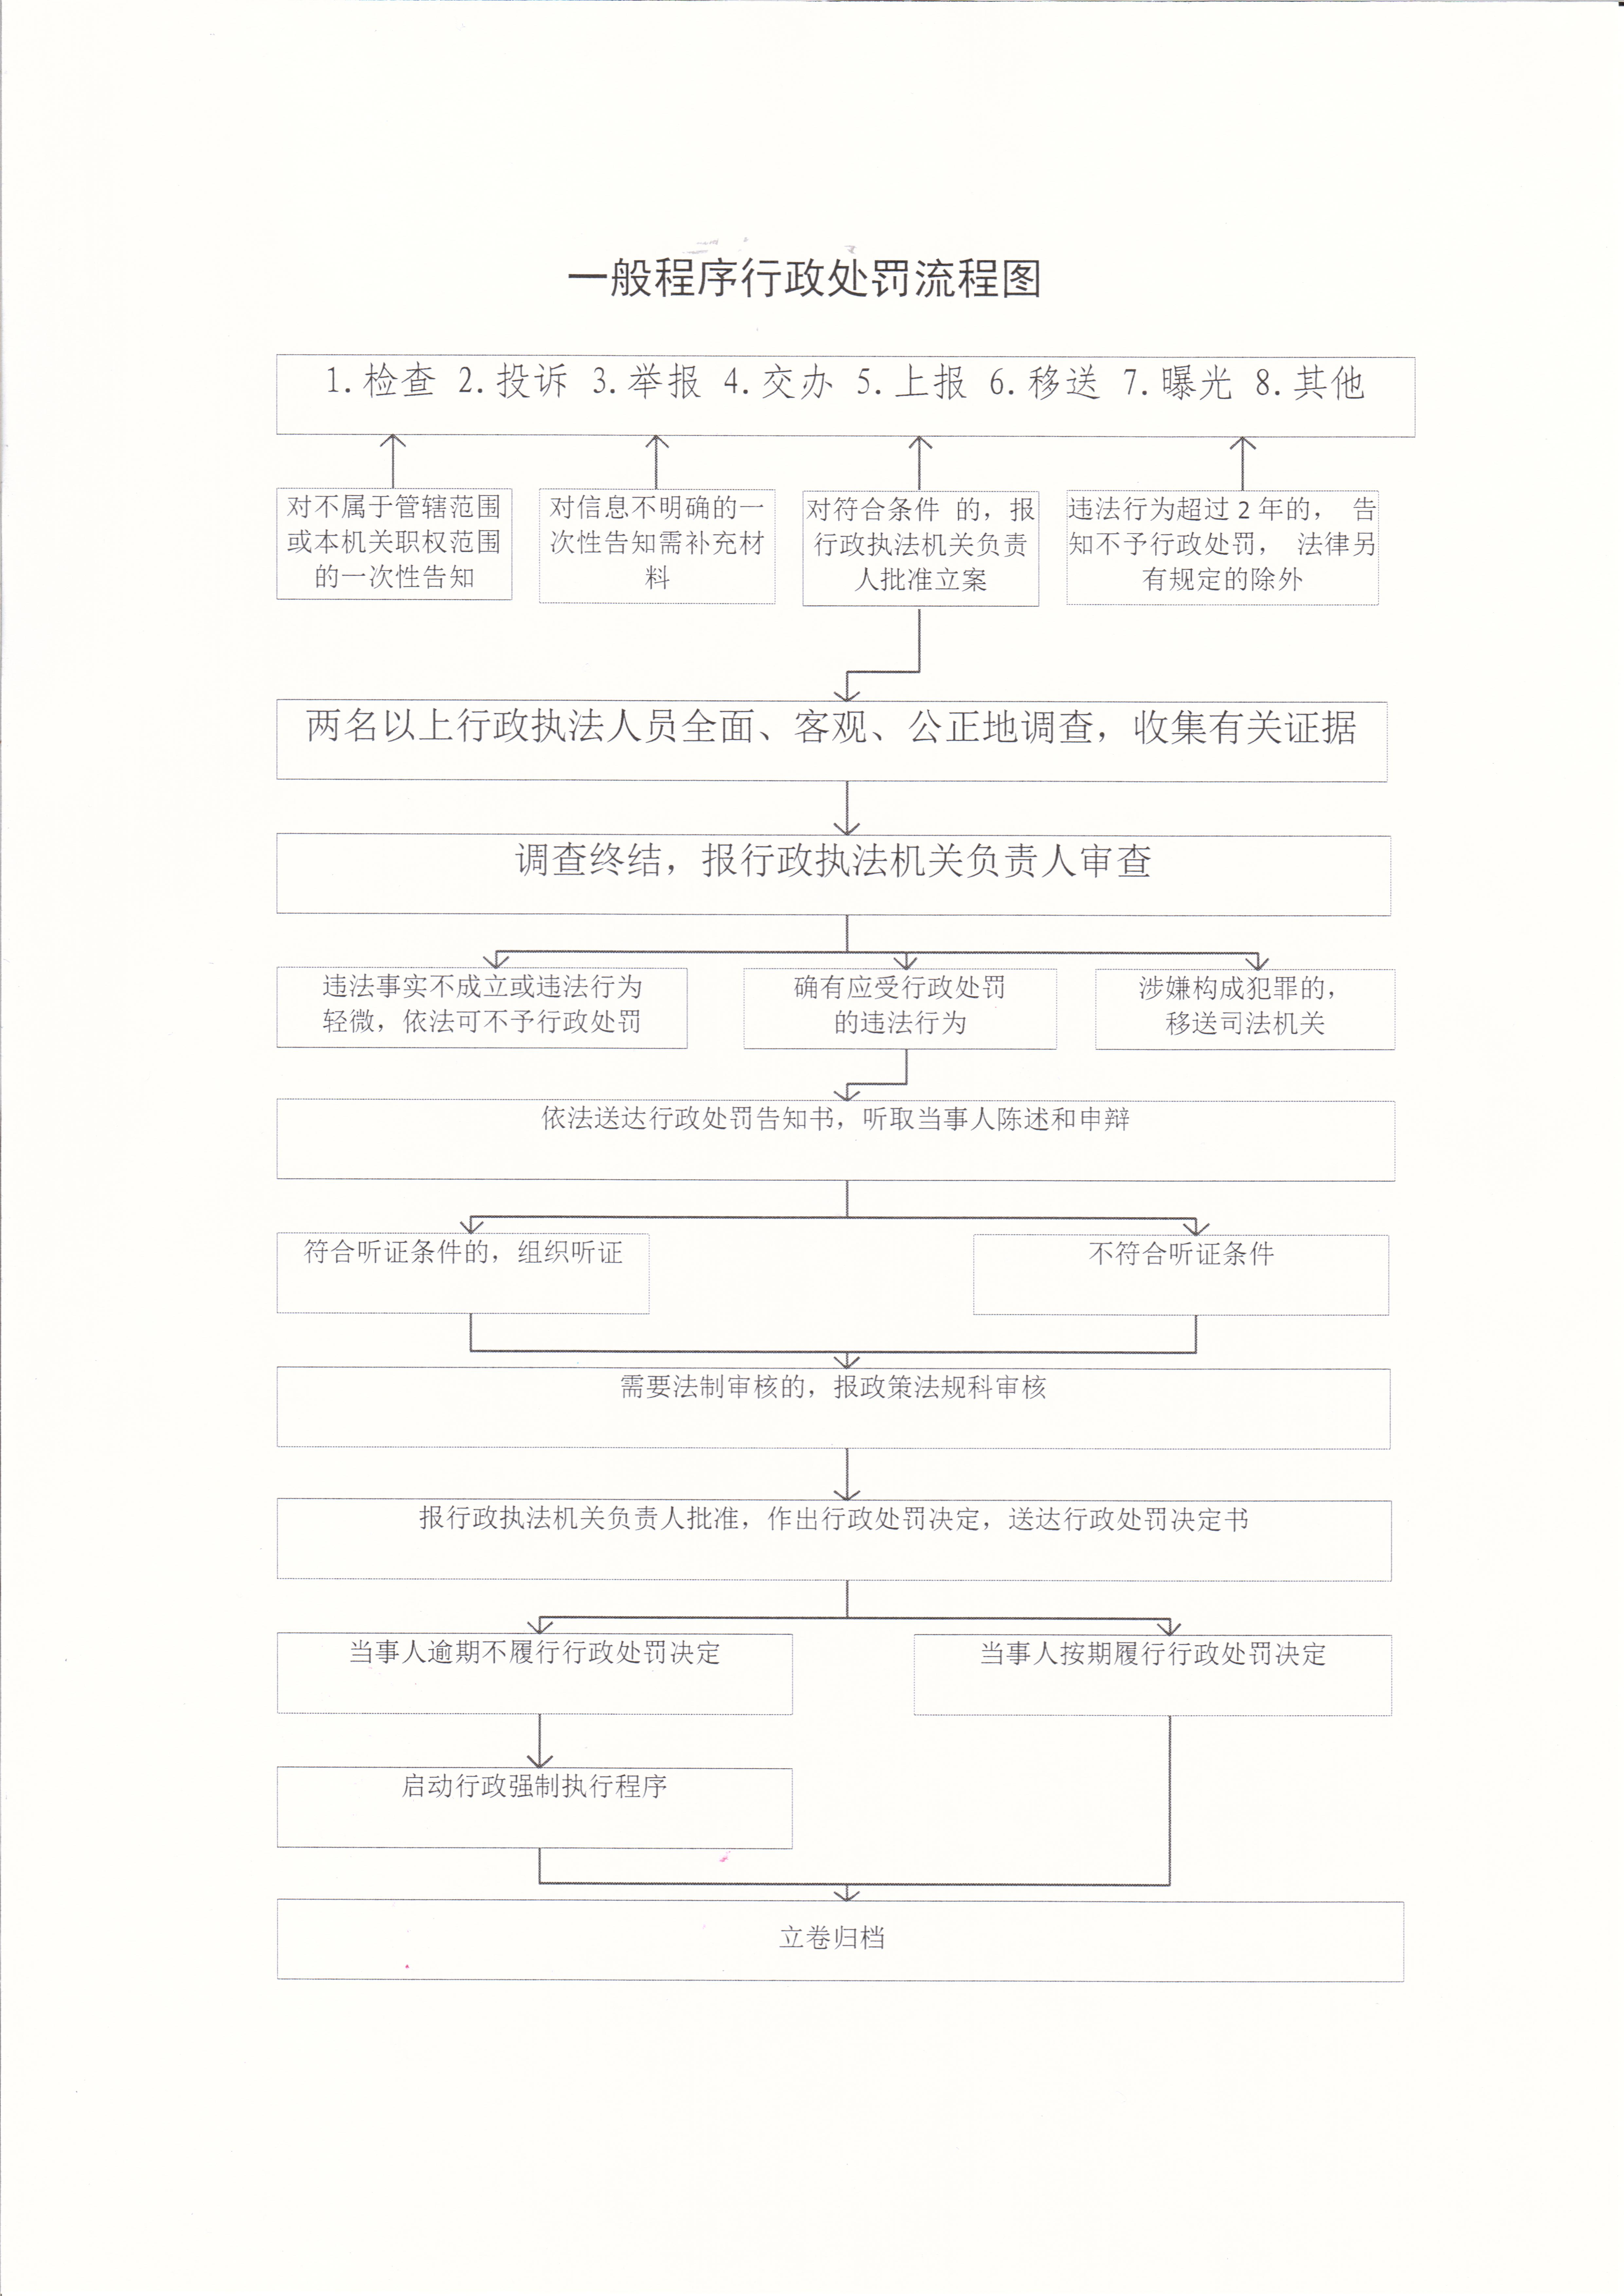 一般程序行政处罚流程图
1.检查 2.投诉 3.举报 4.交办 5.上报 6.移送 7.曝光 8.其他
对不属于管辖范围
或本机关职权范围
的一次性告知
对信息不明确的一
次性告知需补充材
料
对符合条件 的，报
行政执法机关负责
人批准立案
违法行为超过2年的， 告
知不予行政处罚， 法律另
有规定的除外
两名以上行政执法人员全面、客观、公正地调查，收集有关证据
调查终结，报行政执法机关负责人审查
违法事实不成立或违法行为
轻微，依法可不予行政处罚
确有应受行政处罚
的违法行为
涉嫌构成犯罪的，
移送司法机关
依法送达行政处罚告知书，听取当事人陈述和申辩
符合听证条件的，组织听证
不符合听证条件
需要法制审核的，报政策法规科审核
报行政执法机关负责人批准，作出行政处罚决定，送达行政处罚决定书
当事人逾期不履行行政处罚决定
当事人按期履行行政处罚决定
启动行政强制执行程序
立卷归档